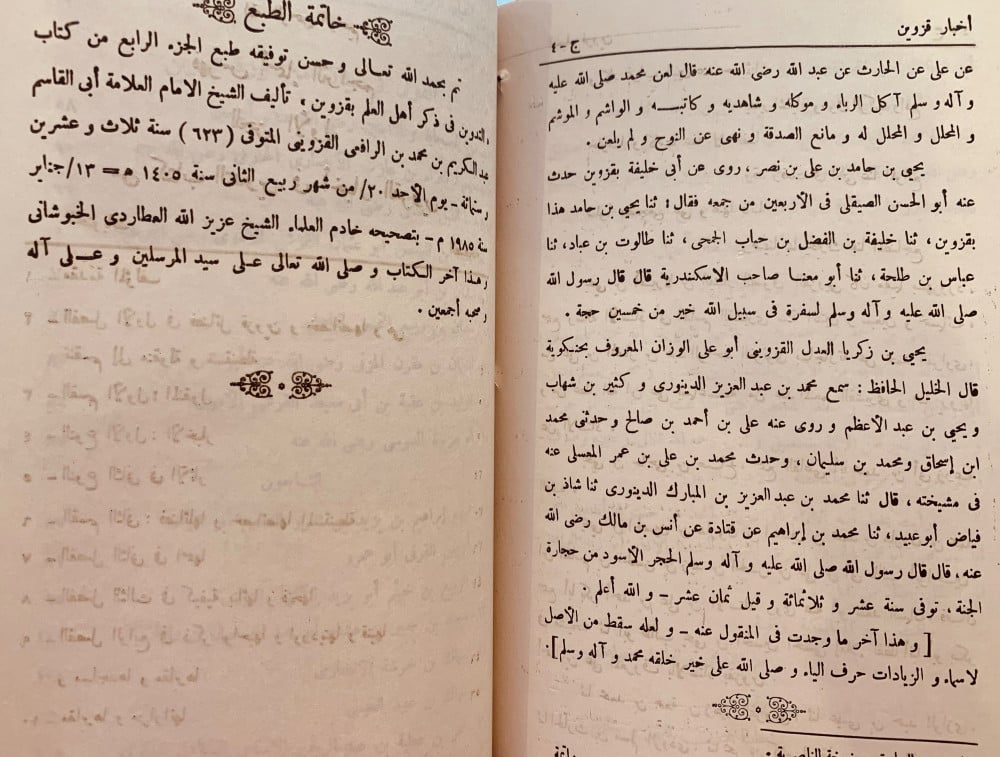 أخبار قزوين
ج-٤
عن على عن الحارث عن عبد الله رضى الله عنه قال لعن محمد صلى الله عليه
و آله و سلم آكل الرباء و موكله و شاهديه و كاتبه و الواشم و الموشم
و المحلل و المحلل له و مانع الصدقة و نهى عن النوح و لم يلعن .
يحيى بن حامد بن على بن نصر ، روى عن أبى خليفة بقزوين حدث
عنه أبو الحسن الصيقلى فى الأربعين من جمعه فقال : ثنا يحيى بن حامد هذا
بقزوين ، ثنا خليفة بن الفضل بن حباب الجمحى ، ثنا طالوت بن عباد، ثنا
عباس بن طلحة ، ثنا أبو معنا صاحب الاسكندرية قال قال رسول الله
صلى الله عليه و آله وسلم لسفرة فى سبيل الله خير من خمسين حجة .
يحيى بن زكريا العدل القزوينى أبو على الوزان المعروف بحنكوية
قال الخليل الحافظ : سمع محمد بن عبد العزيز الدينورى و كثير بن شهاب
و يحيى بن عبد الأعظم و روى عنه على بن أحمد بن صالح وحدثنى محمد
ابن إسحاق ومحمد بن سليمان ، وحدث محمد بن على بن عمر المعسلى عنه
فى مشيخته ، قال ثنا محمد بن عبد العزيز بن المبارك الدينورى ثنا شاذ بن
فياض أبوعبيد ، ثنا محمد بن إبراهيم عن قتادة عن أنس بن مالك رضى الله
عنه، قال قال رسول الله صلى الله عليه و آله وسلم الحجر الأسود من حجارة
الجنة ، توفى سنة عشر و ثلاثمائة و قيل ثمان عشر – و الله أعلم .
[ و هذا آخر ما وجدت فى المنقول عنه – و لعله سقط من الأصل
لاسماء و الزيادات حرف الياء و صلى الله على خير خلقه محمد و آله وسلم].
خاتمة الطبع
تم بحمد الله تعـالى و حسن توفيقه طبع الجزء الرابع من كتاب
التدوين فى ذكر أهل العلم بقزوين ، تأليف الشيخ الامام العلامة أبى القاسم
عبد الكريم بن محمد بن الرافعى القزوينى المتوفى ( ٦٢٣ ) سنة ثلاث و عشرين
وستمائة – يوم الأحد ٢٠/ من شهر ربيع الثانى سنة ١٤٠٥ ه = ١٣/جناير
سنة ١٩٨٥ م – بتصحيحه خادم العلماء الشيخ عزيز الله العطاردى الخبوشانى
وهذا آخر الكتاب و صلى الله تعالى عـلى سيد المرسلين و عـلى آله
وصحبه أجمعين .